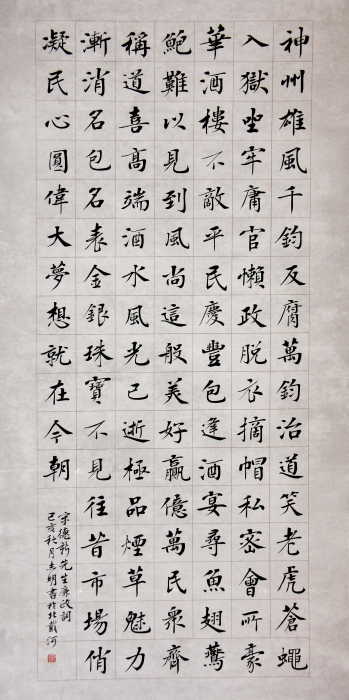 神州雄風千鈞反腐萬鈞治道笑老虎蒼蠅
入獄坐牢庸官懶政脫衣摘帽私密會所豪
華酒樓不敵平民慶豐包逢酒宴尋魚翅鷰
鮑難以見到風尚這般美好贏億萬民衆齊
稱道喜高端酒水風光已逝極品煙草魅力
漸消名包名表金銀珠寶不見往昔市場俏
凝民心圓偉大夢想就在今朝
宗德新先生廉政詞
己亥秋月志明書於北戴河